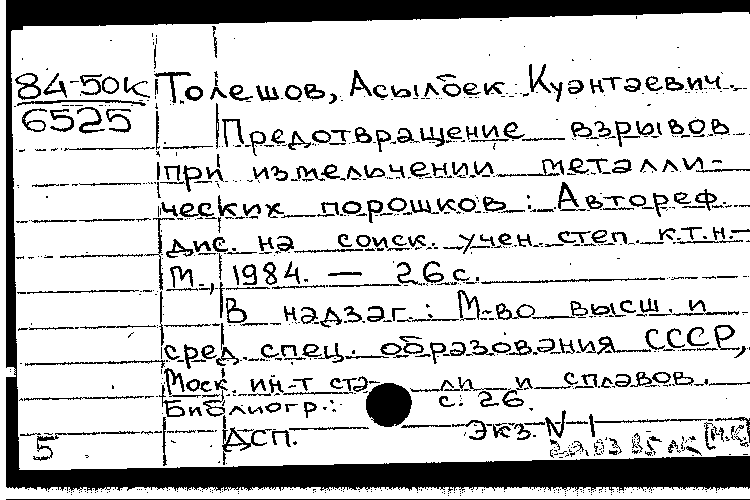 84-50к
6525
Толешов, Асылбек Куантаевич.
Предотвращение взрывов
при измельчении металли-
ческих порошков: Автореф.
дис. на соиск. учен. степ. к.т.н.—
М., 1984. — 26 с.
В надзаг.: М-во высш. и
сред. спец. образования СССР,
Моск. ин-т ста- ли и сплавов.
Библиогр.: с. 26.
ДСП. Экз. N 1
5 [МК]